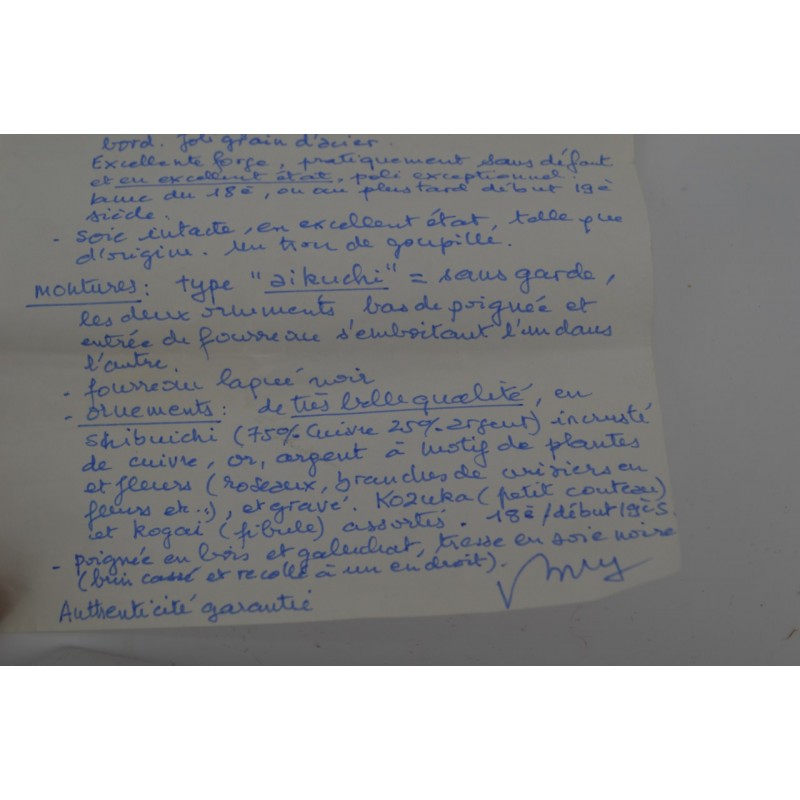 bord. Joli grain d'acier.
Excellente forge, pratiquement sans défaut
et en excellent état, poli exceptionnel.
Lame du 18è, ou au plus tard début 19è
siècle.
- soie intacte, en excellent état, telle que
d'origine. Un trou de goupille.
montures: type "aikuchi" = sans garde,
les deux ornements bas de poignée et
entrée de fourreau s'emboitant l'un dans
l'autre.
- fourreau laqué noir
- ornements: de très belle qualité, en
shibuichi (75% cuivre 25% argent) incrusté
de cuivre, or, argent à motif de plantes
et fleurs (roseaux, branches de cerisiers en
fleurs etc..), et gravé. Kozuka (petit couteau)
et Kogai (fibule) assortis. 18è/début 19è S.
- poignée en bois et galuchat, tresse en soie noire
(brin cassé et recollé à un endroit).
Authenticité garantie